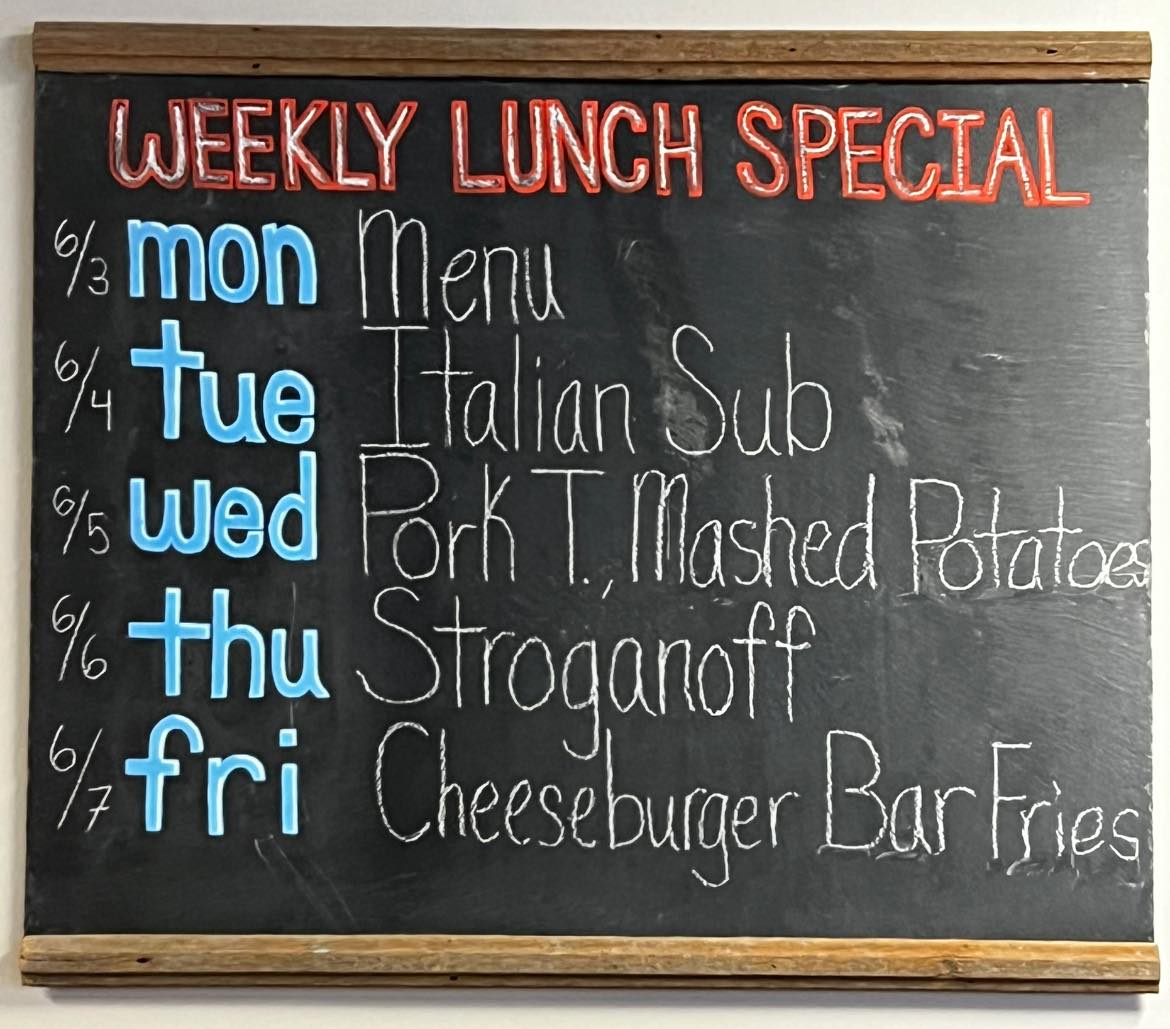 WEEKLY LUNCH SPECIAL
6/3 mon Menu
6/4 tue Italian Sub
6/5 wed Pork T., Mashed Potatoes
6/6 thu Stroganoff
6/7 fri Cheeseburger Bar Fries